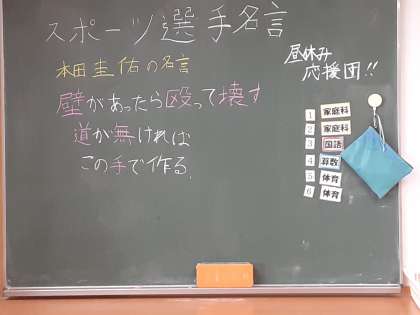 スポーツ選手名言
本田圭佑の名言
壁があったら殴って壊す
道が無ければ
この手で作る。
昼休み
応援団!!
1 家庭科
2 家庭科
3 国語
4 算数
5 体育
6 体育